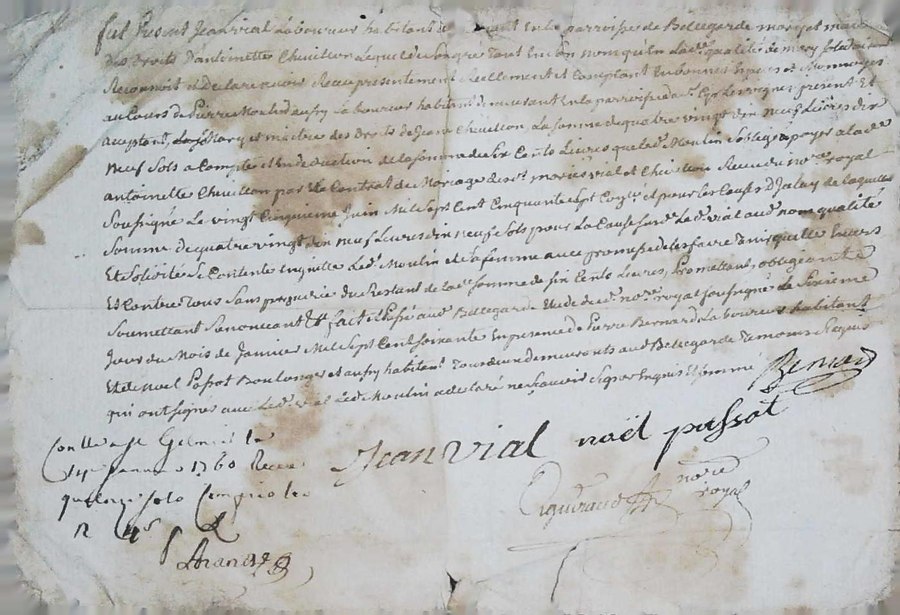 fut Present Jean vial Laboureur habitant et demeurant En la parroisse de Bellegarde mary et maitre
des droits d'antoinette Chuillon Lequel de son gre tant En son nom qu'En lad. qualité de mary
Reconnoit et declare avoir Receu presentement Reellement et Comptant En bonnes Especes et Monnoyes
au Cours de Pierre Moulin aussy Laboureur habitant demeurant En la parroisse de st Cyr Les vignes present Et
acceptant Mary et maitre des droits de Jeanne Chuillon La somme de quatre vingt dix neuf Livres dix
neuf Sols a Compte et En deduction de la somme de six Cents Livres que led. Moulin s'obligea payer a lad.
antoinette Chuillon par Le Contrat de Mariage desd. mariés vial et Chuillon Receu du nore royal
Soussigné Le vingt Cinquieme Juin Mil Sept Cent Cinquante Sept et pour Les Causes de laquelle
Somme de quatre vingt dix neuf Livres dix neuf Sols pour La Cause Led. vial aud. nom qualité
Et Solidité Se Contente En quitte Led. Moulin et Sa femme avec promesse de Les faire tenir quitte Envers
Et Contre Tous Sans prejudice du Restant de lad. somme de six Cents Livres, Promettant, obligeant
Soumettant Renonçant Et fait et Passé aud. Bellegarde Etude dud. nore royal Soussigné Le Sixieme
Jour du Mois de Janvier Mil Sept Cent Soixante En presence de Pierre Bernard Laboureur habitant
Et de Noel Passot Boulanger et aussy habitant Tous deux demeurants aud. Bellegarde Temoins
qui ont signés avec Led. vial Led. Moulin a declaré ne Sçavoir Signer Enquis Et Sommé
Bernard
Jean vial noël passot
nore royal
Controllé a St Galmier le
14e Janvier 1760 Receu
quatorze sols